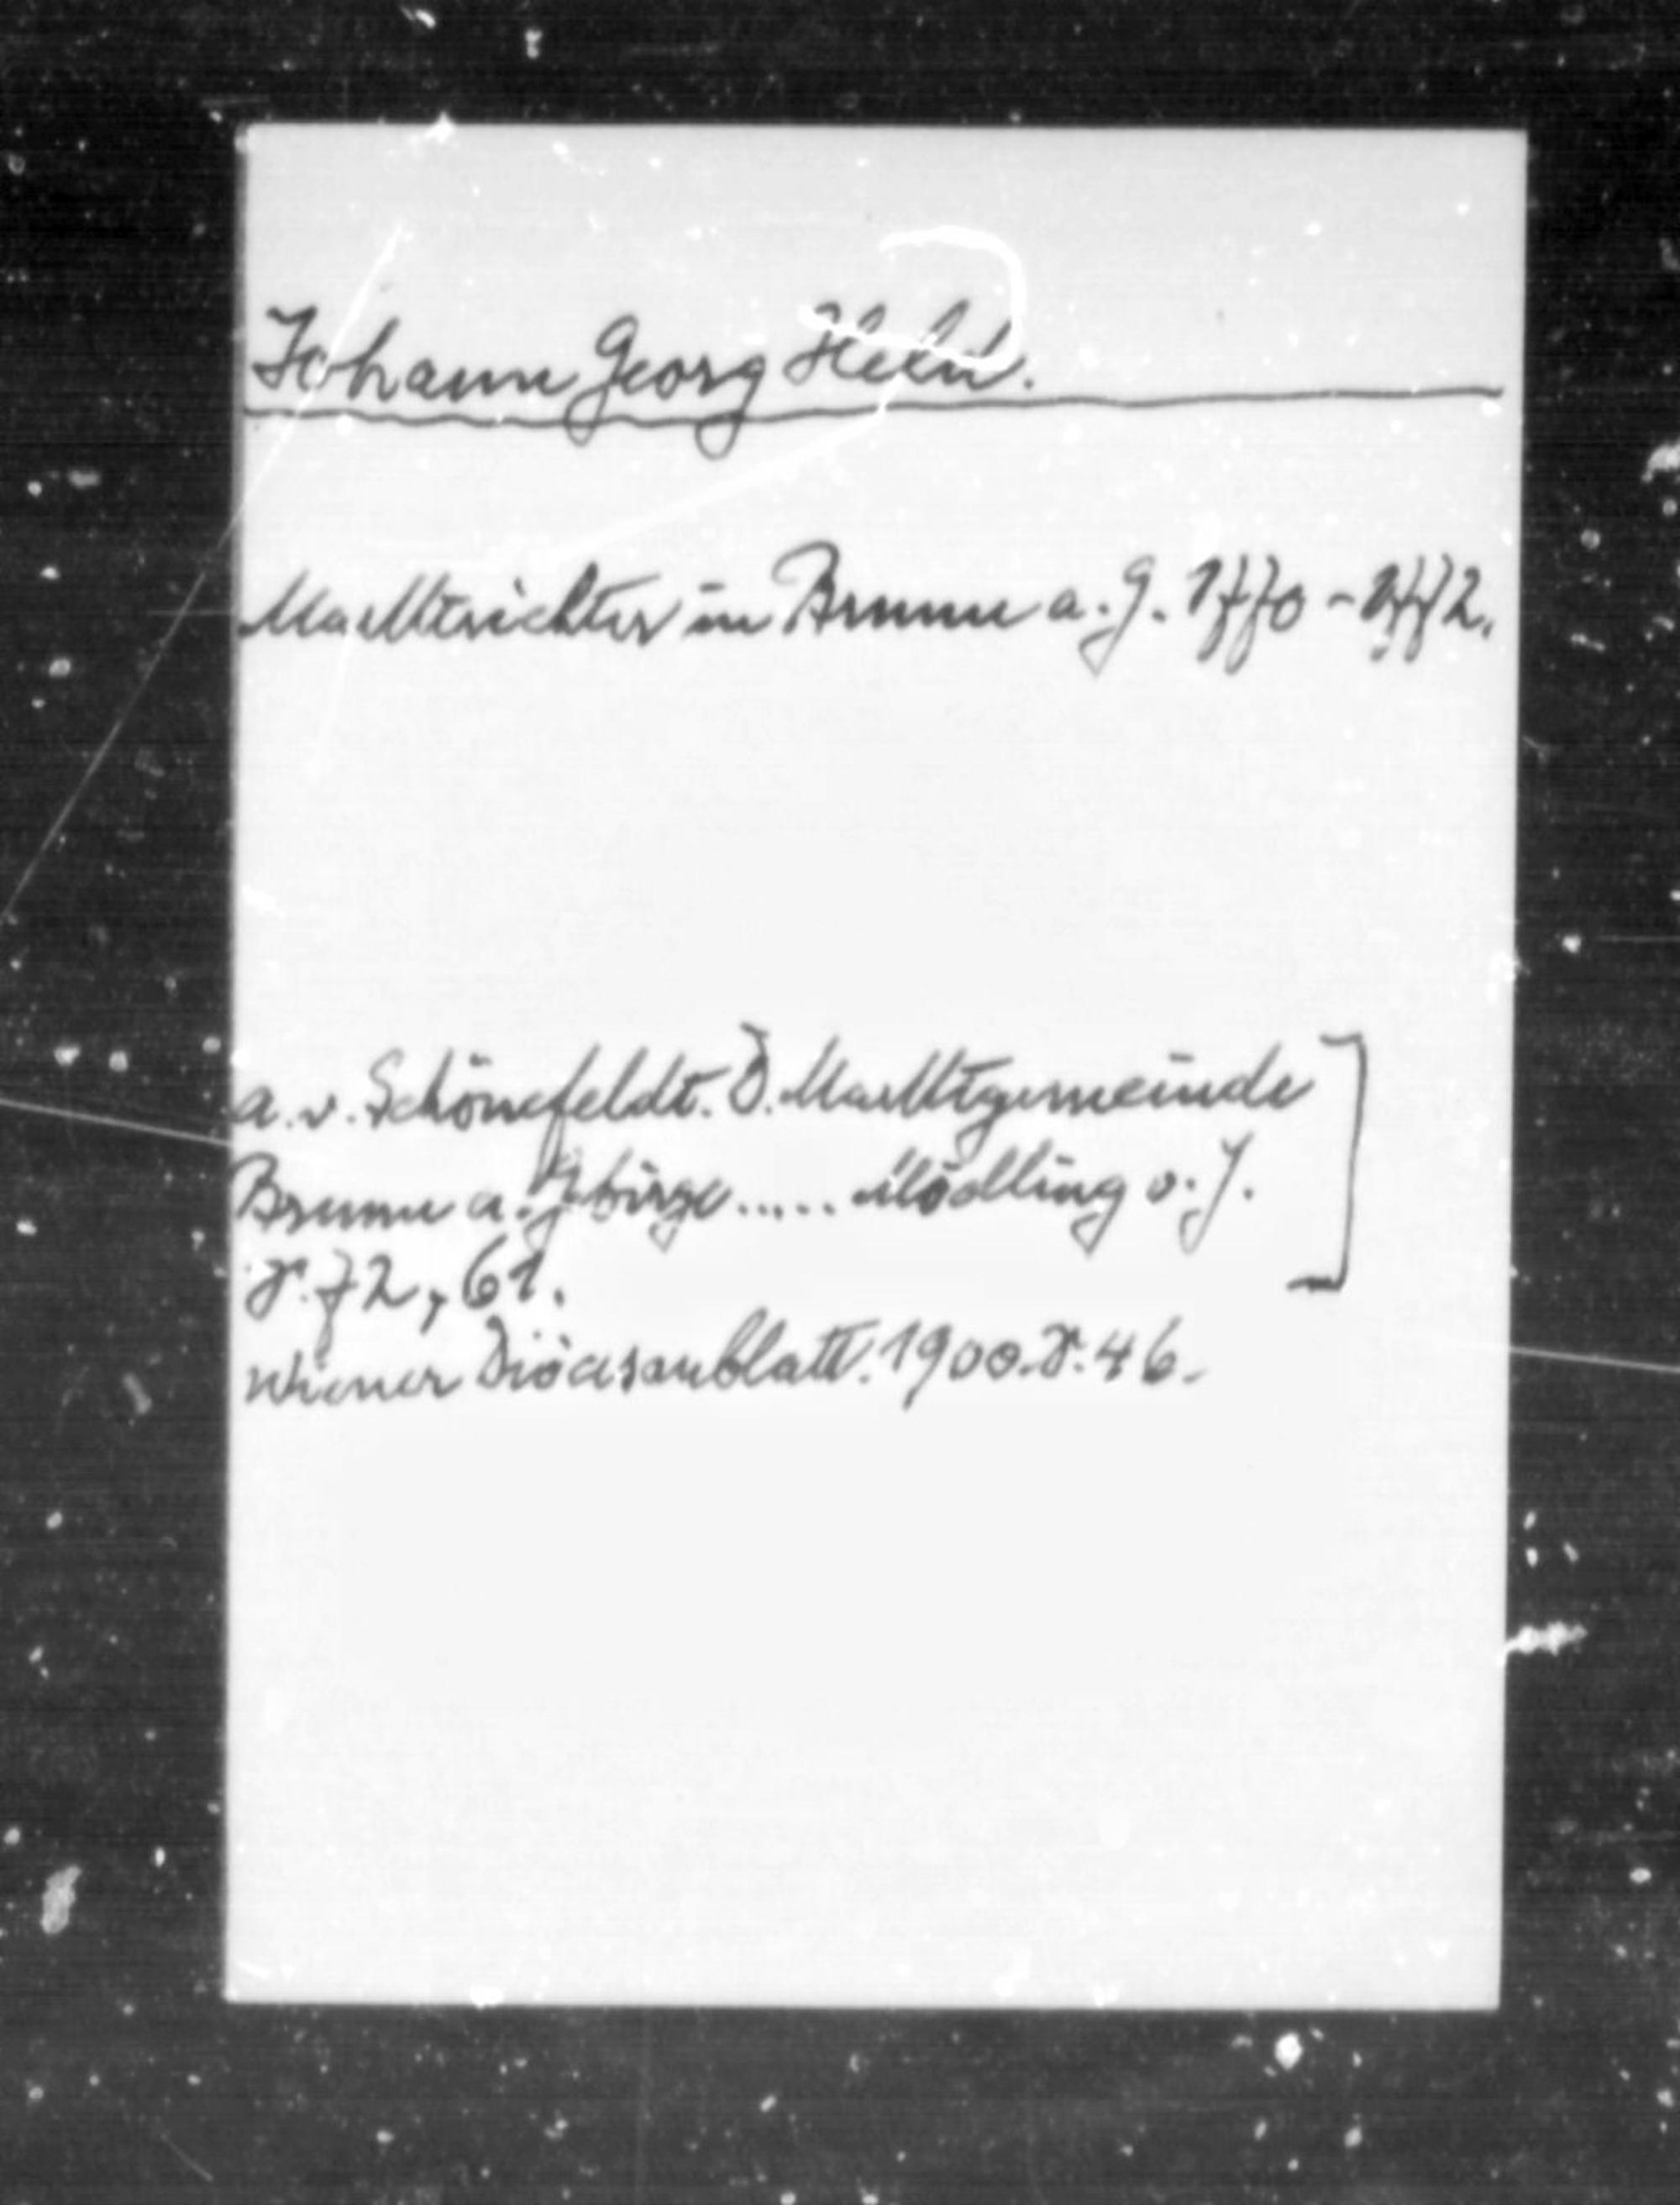 Johann Georg Held.
Marktrichter in Brunn a. G. 1770 - 1772.
A. v. Schönfeldt. D. Marktgemeinde
Brunn a. Gebirge ..... Mödling o. J.
S. 72, 61.
Wiener Diöcesanblatt. 1900. S. 46.